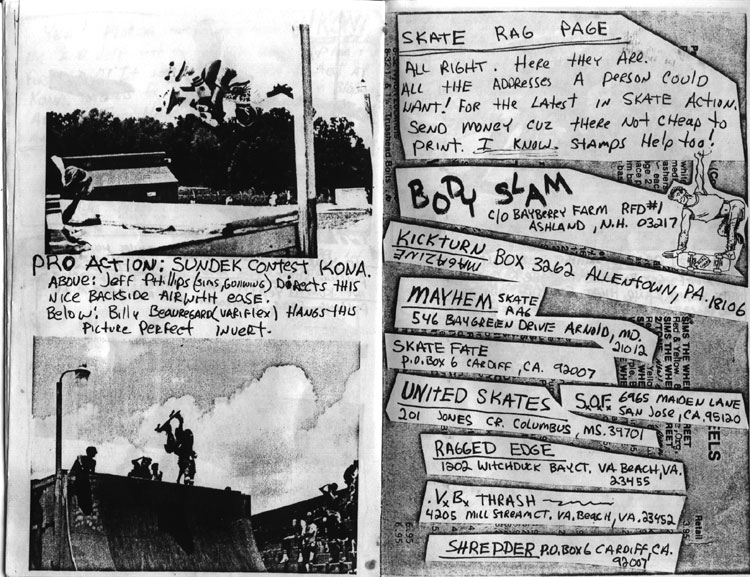 PRO ACTION: SUNDEK CONTEST KONA.
ABOVE: JEFF PHILLIPS (SIMS, GULLWING) DIRECTS THIS
NICE BACKSIDE AIR WITH EASE.
BELOW: BILLY BEAUREGARD (VARIFLEX) HANGS THIS
PICTURE PERFECT INVERT.
SKATE RAG PAGE
ALL RIGHT. HERE THEY ARE.
ALL THE ADDRESSES A PERSON COULD
WANT! FOR THE LATEST IN SKATE ACTION.
SEND MONEY CUZ THERE NOT CHEAP TO
PRINT. I KNOW. STAMPS HELP TOO!
BODY SLAM
C/O BAYBERRY FARM RFD#1
ASHLAND, N.H. 03217
KICKTURN
MAGAZINE
BOX 3262 ALLENTOWN, PA. 18106
MAYHEM SKATE
RAG
546 BAYGREEN DRIVE ARNOLD, MD.
21012
SKATE FATE
P.O. BOX 6 CARDIFF, CA. 92007
UNITED SKATES
201 JONES CR. COLUMBUS, MS. 39701
S.O.F. 6965 MAIDEN LANE
SAN JOSE, CA. 95120
RAGGED EDGE
1202 WITCHDUCK BAY CT. VA. BEACH, VA.
23455
V.B. THRASH
4205 MILL STREAM CT. VA. BEACH, VA. 23452
SHREDDER P.O. BOX 6 CARDIFF, CA.
92007
SIMS THE WHEE
Red & Yellow
Retail
6.95
6.95